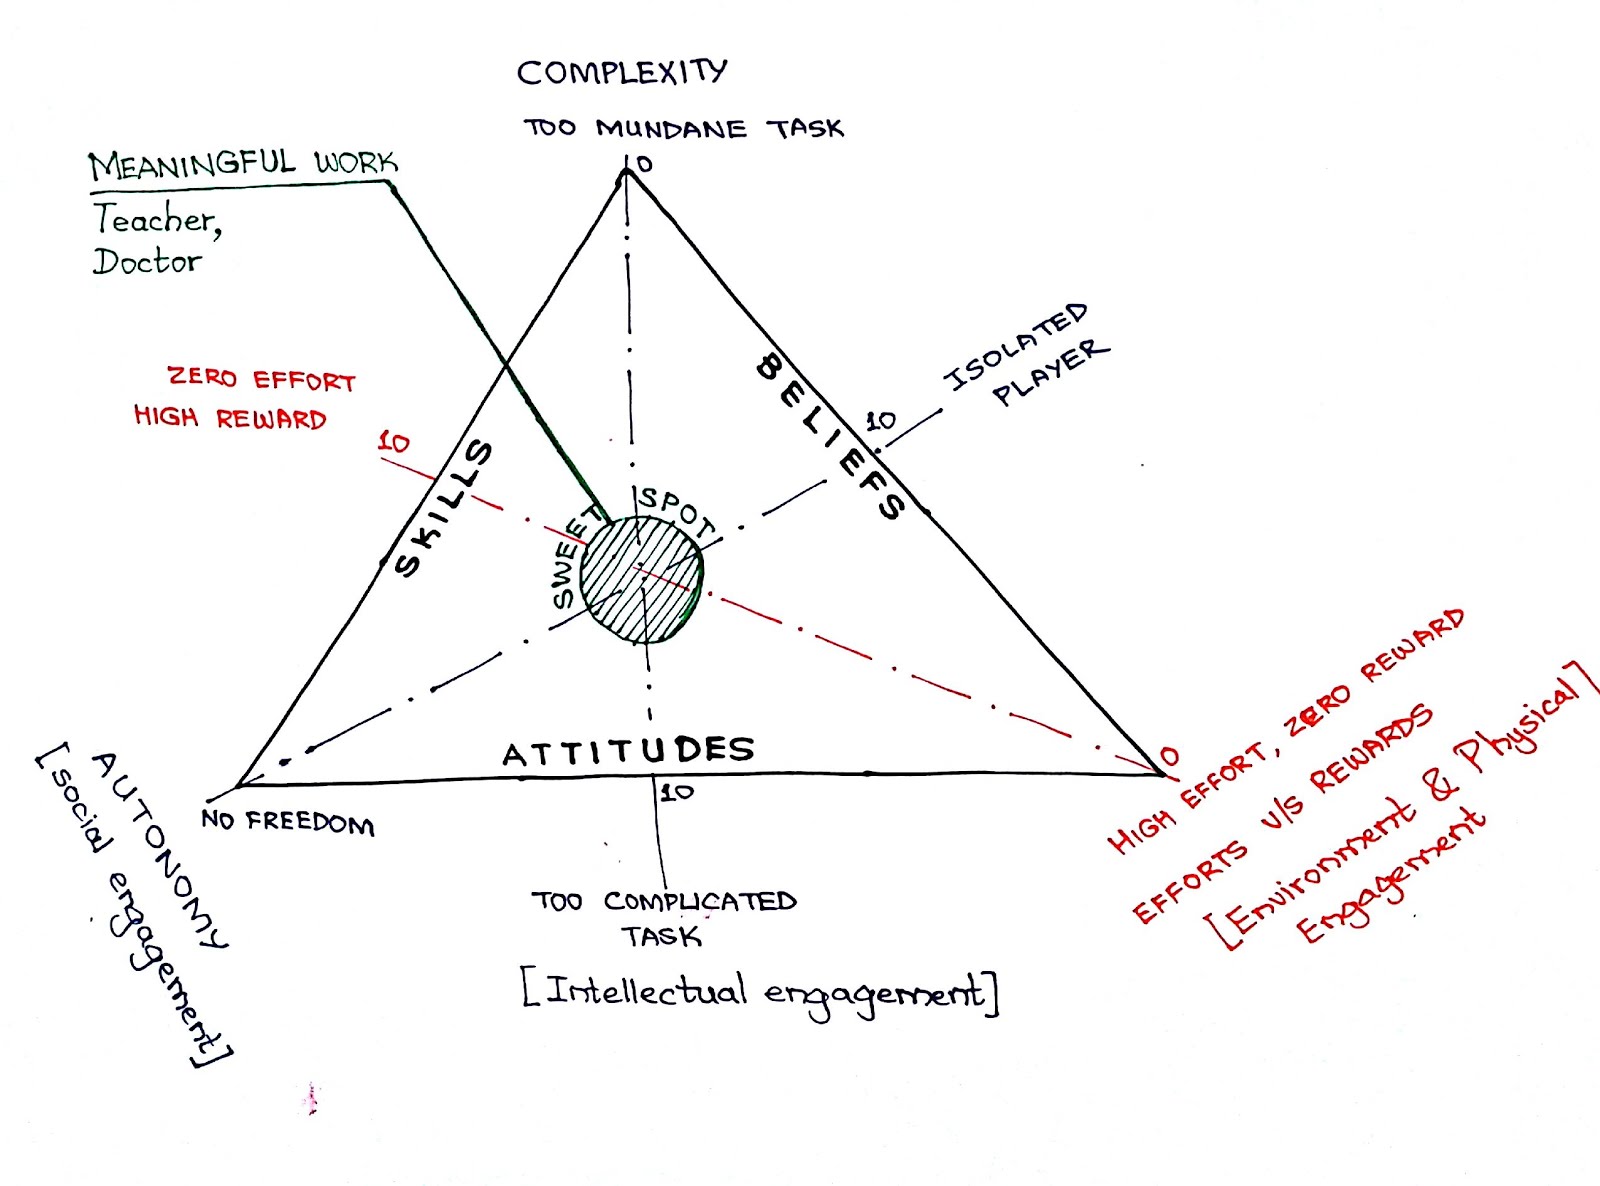 COMPLEXITY
TOO MUNDANE TASK
0
MEANINGFUL WORK
Teacher,
Doctor
ZERO EFFORT
HIGH REWARD
10
SKILLS
BELIEFS
10
ISOLATED
PLAYER
SWEET SPOT
ATTITUDES
10
NO FREEDOM
AUTONOMY
[social engagement]
TOO COMPLICATED
TASK
[Intellectual engagement]
0
HIGH EFFORT, ZERO REWARD
EFFORTS V/S REWARDS
[Environment & Physical]
Engagement